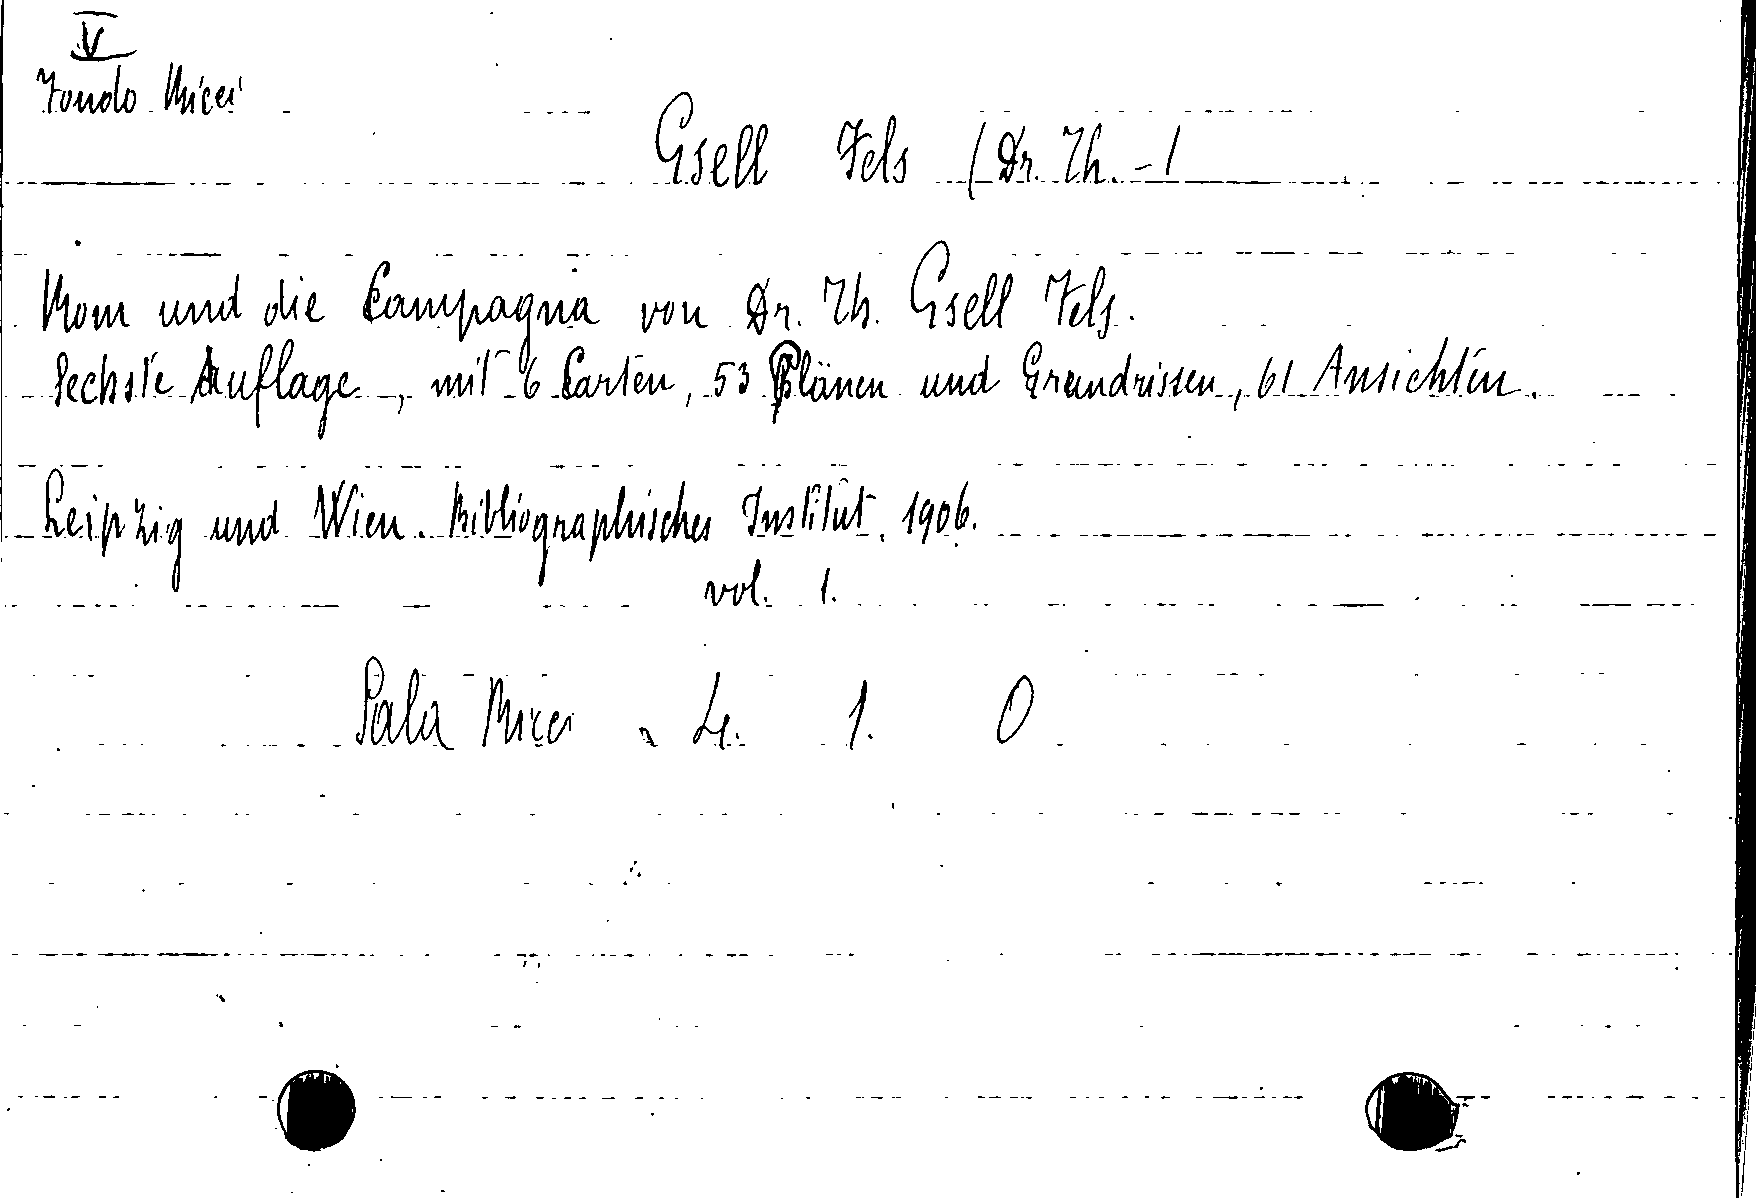 V
Fondo Ricci
Gsell Fels (Dr. Th. -)
Rom und die Campagna von Dr. Th. Gsell Fels.
Sechste Auflage, mit 6 Carten, 53 Plänen und Grundrissen, 61 Ansichten.
Leipzig und Wien. Bibliographisches Institut, 1906.
vol. 1.
Sala Ricci 1. 0